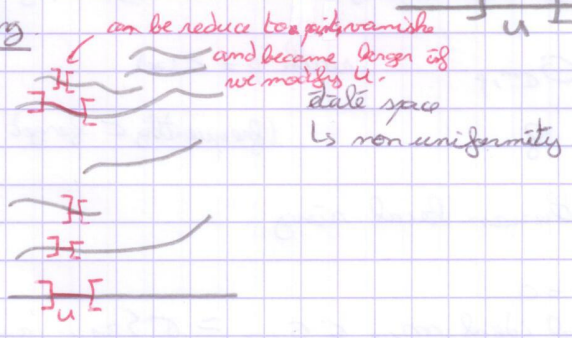 can be reduce to a point, vanish
and became larger if
we modify U.
étalé space
↳ non uniformity
U
U